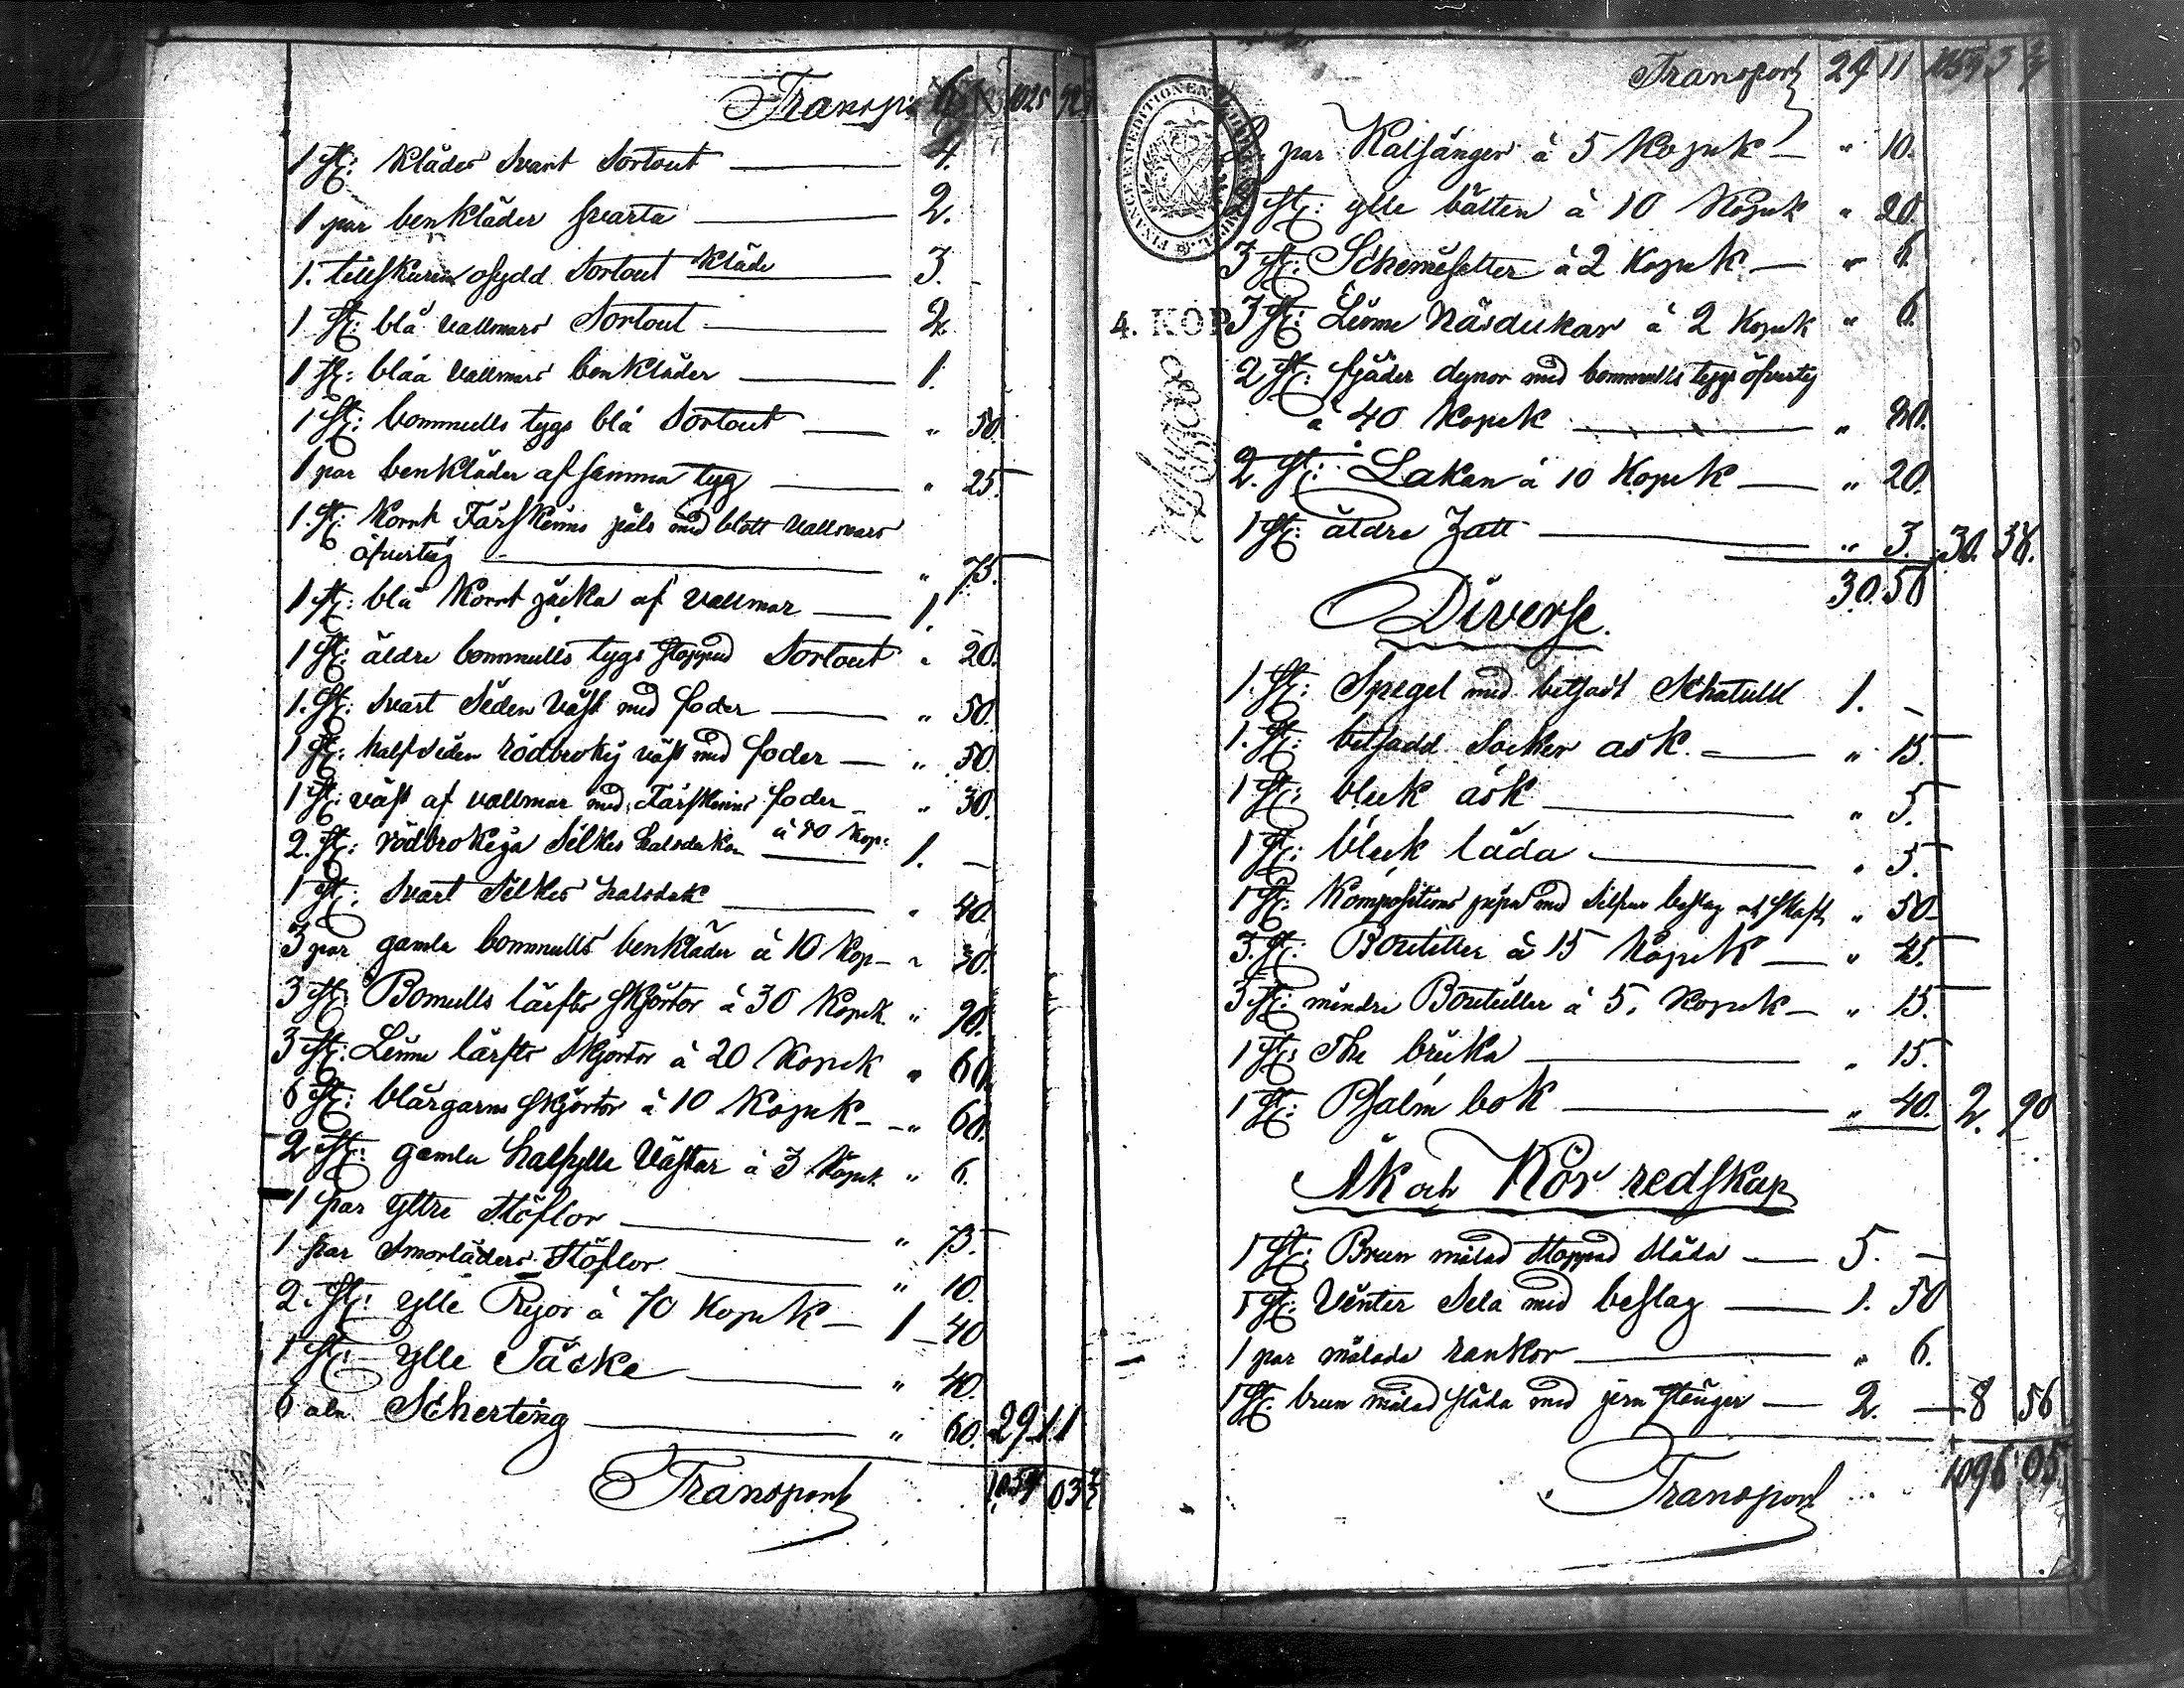 Transp:
1 St: Klädes Svart Sortout — 4.
1 par benkläder svarta — 2.
1. tillskuren osydd Sortout Kläde — 3. -
1 St: blå Vallmars Sortout — 2.
1 St: blåa Vallmars benkläder — 1.
1 St: bommulls tygs blå Sortout — " 50.
1 par benkläder af samma tyg — " 25.
1. St: Kornt Fårskinns päls med blått Vallmars
öfvertyg — " 75.
1 St: blå Kornt jacka af Vallmar — 1.
1 St: äldre bommulls tygs stoppad Sortout " 20.
1. St: Svart Siden Väst med foder — " 50.
1 St: half siden rödbrokig väst med foder — " 50.
1 St: väst af vallmar med Fårskinns foder — " 30.
2. St: rödbrokiga Silkes halsdukar à 50 Kop: — 1. —
1 St: Svart Silkes halsduk — " 40.
3 par gamla bommulls benkläder à 10 Kop — " 30.
3 St: Bomulls lärfts skjortor à 30 Kopek. " 90.
3 St: Linne lärfts Skjortor à 20 Kopek " 60.
6 St: blårgarns skjortor à 10 Kopek — " 60.
2 St: gamla halfylle Västar à 3 Kopek " 6.
1 par yttre Stöflor — " 75.
1 par Smorläders Stöflor — " 10.
2. St: ylle Ryor à 70 Kopek — 1 — 40
1 St: ylle Täcke — " 40.
6 aln. Scherting — " 60. 29 11
Transport 1054 03 1/2
Transport 29 11 1054 3 1/2
FINANCE EXPEDITIONEN
par Kalsånger à 5 Kopek — " 10.
St: ylle bälten à 10 Kopek " 20.
3 St: Schemisetter à 2 Kopek — " 6.
4. KOP.
3 St: Linne Näsdukar à 2 Kopek " 6.
2 St: fjäder dynor med bommulls tygs öfvertyg
à 40 Kopek — " 80.
2. St: Lakan à 10 Kopek — " 20.
1 St: äldre hatt — " 3. 30. 38.
30.56
Diverse.
1. St: Spegel med betsadt Schatull 1. -
1. St: betsadd Socker ask. — " 15.
1 St: bleck ask — " 5.
1 St: bleck låda — " 5.
1 St: Kompositions pipa med Silfver beslag och skaft " 50
3. St: Bouteiller à 15 Kopek — " 45.
3 St: mindre Bouteiller à 5. Kopek — " 15.
1 St: The bricka — " 15.
1 St: Psalm bok — " 40. 2. 90
Åk och Kör redskap
1 St: Brun målad stoppad Släda — 5. —
1 St: Vinter Sela med beslag — 1. 50
1 par målade rankor — " 6.
1 St: brun målad släda med jern stänger — 2. — 8 56
Transport 1096 05